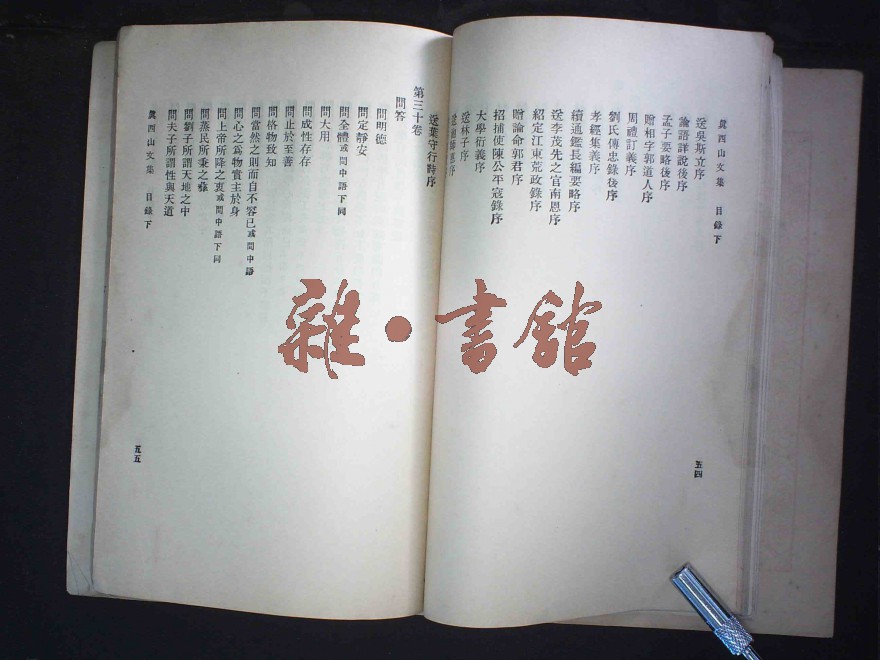 眞西山文集 目錄下
送吳斯立序
論語詳說後序
孟子要略後序
贈相字郭道人序
周禮訂義序
劉氏傳忠錄後序
孝經集義序
續通鑑長編要略序
送李茂先之官南恩序
紹定江東荒政錄序
贈論命郭君序
招捕使陳公平寇錄序
大學衍義序
送林子序
序
五四
送葉守行時序
第三十卷
問答
問明德
問定靜安
問全體或問中語下同
問大用
問成性存存
問止於至善
問格物致知
問當然之則而自不容已或問中語
問心之為物實主於身
問上帝所降之衷或問中語下同
問蒸民所秉之彝
問劉子所謂天地之中
問夫子所謂性與天道
眞西山文集 目錄下
五五
雜·書館